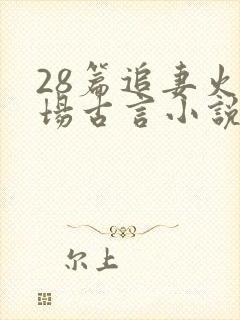 28篇追妻火
场古言小说
尔上